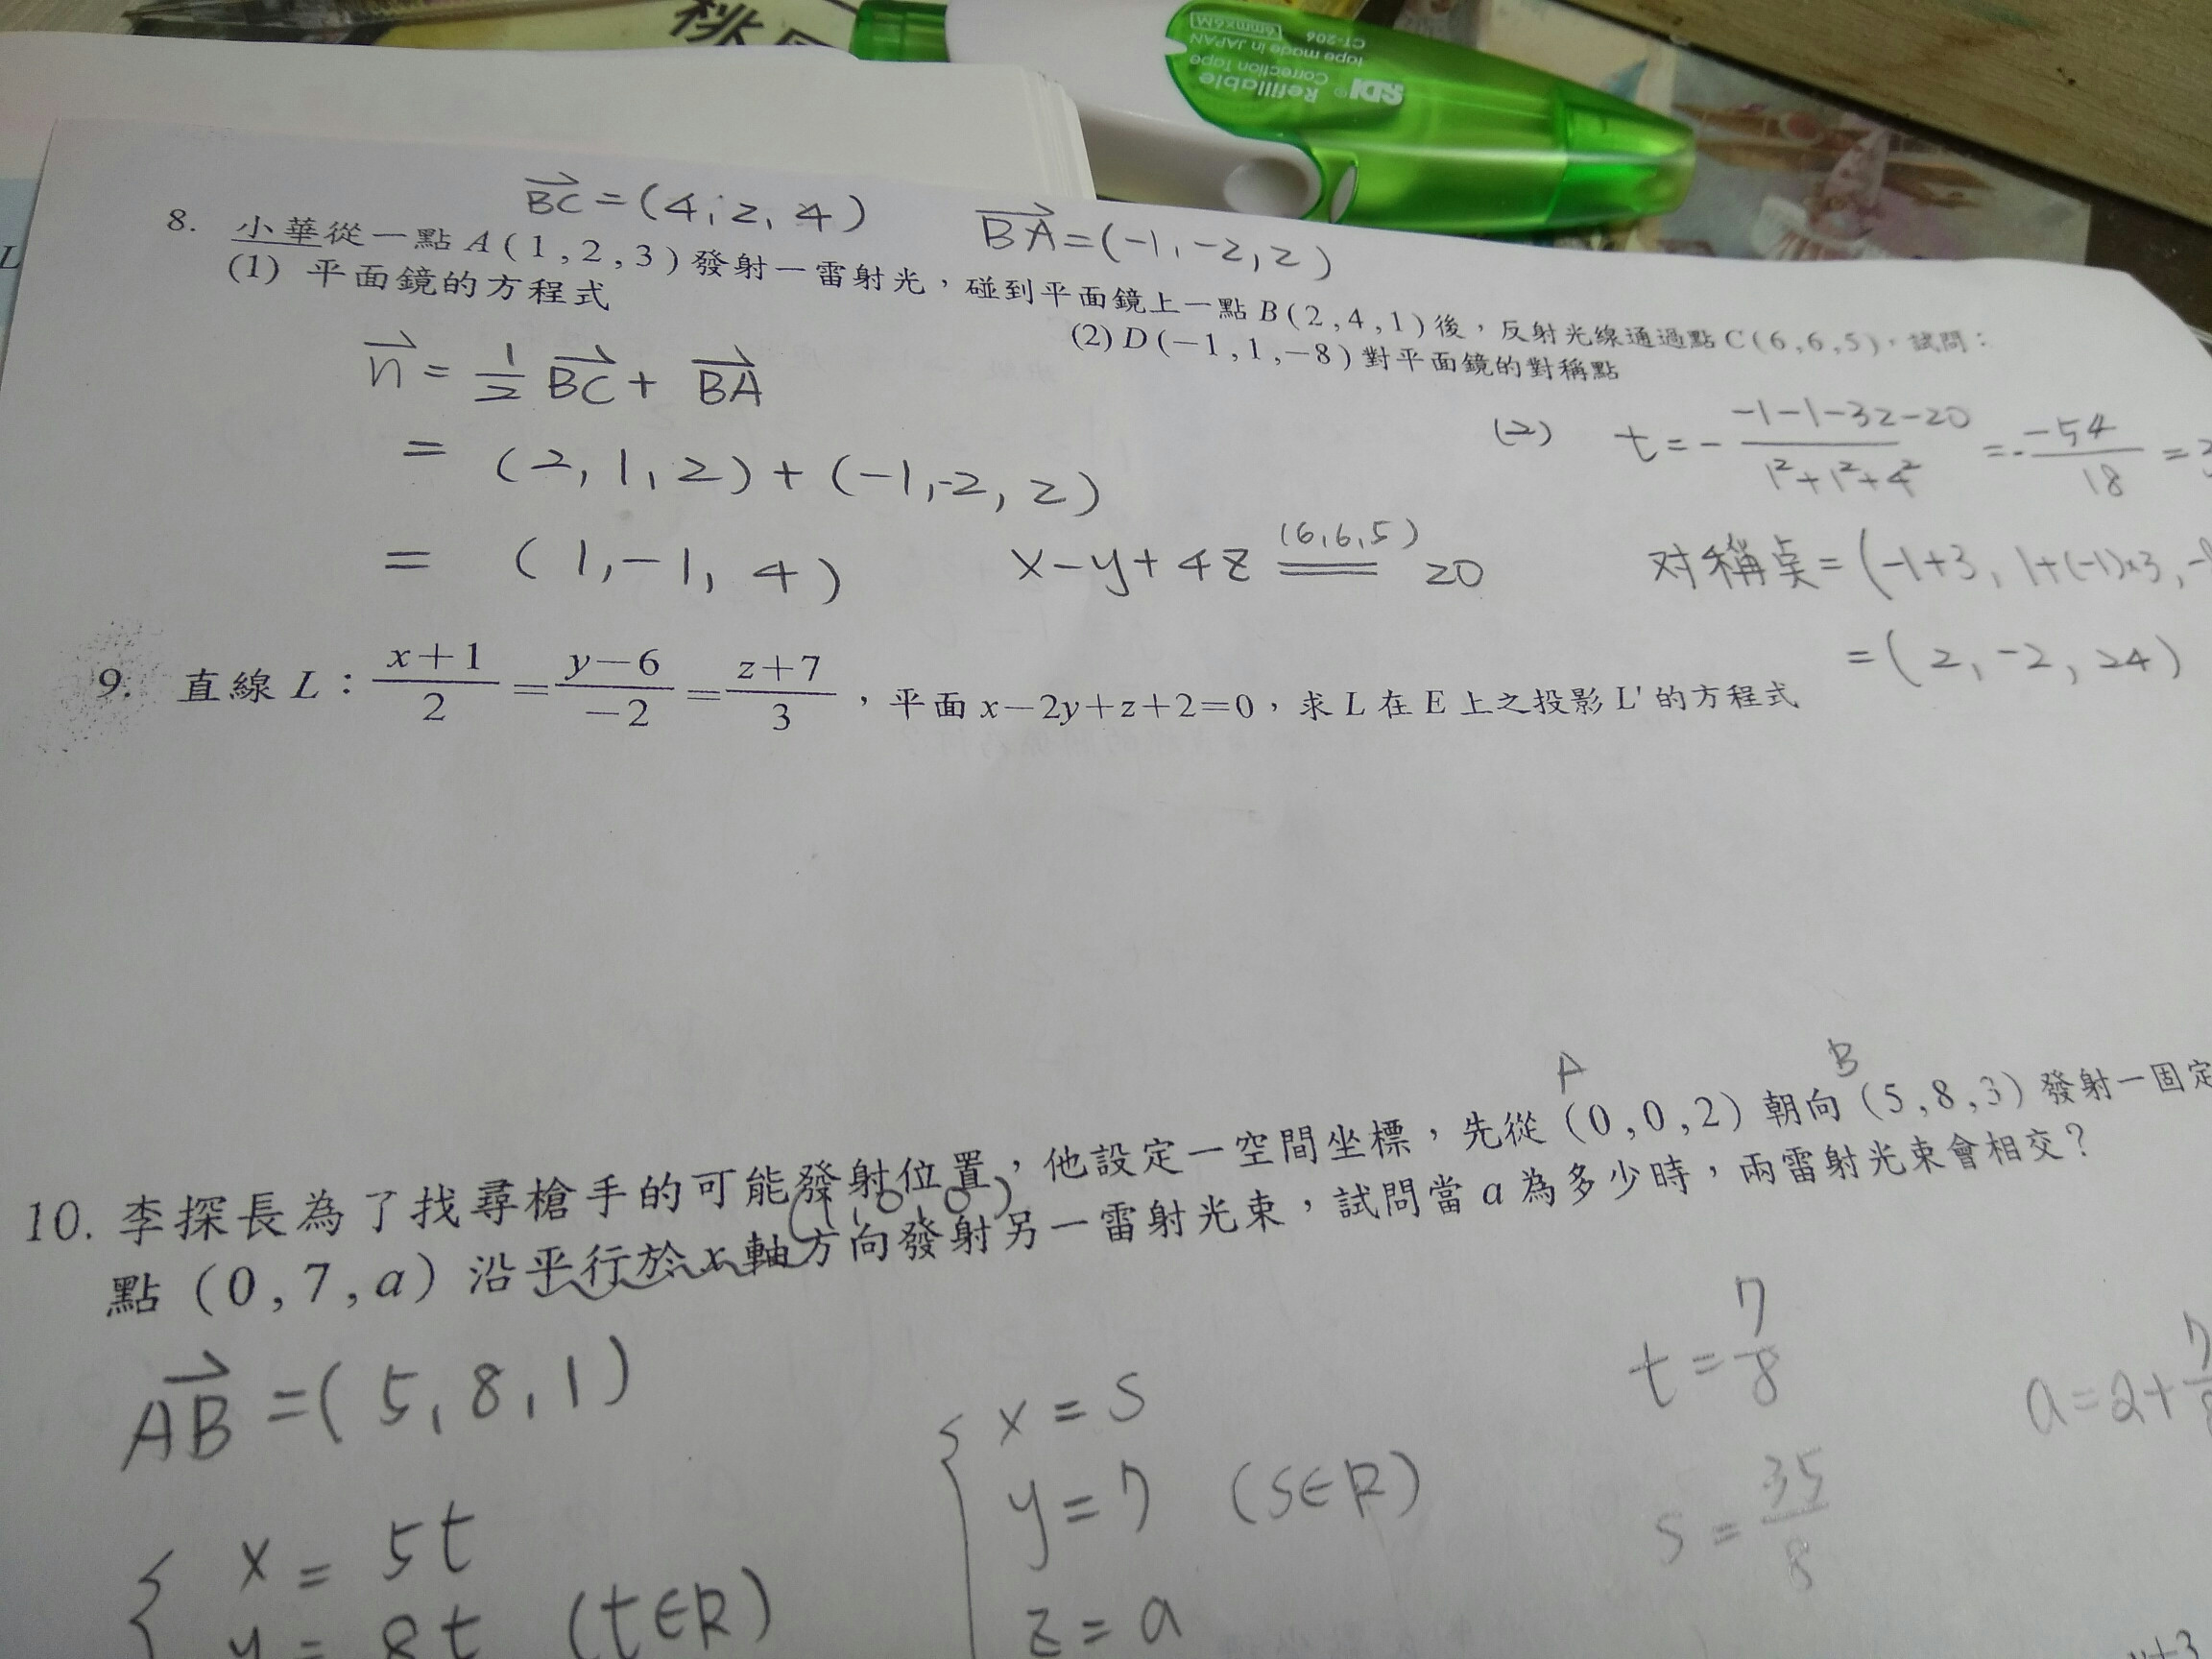 桃
SDI® Refillable
Correction Tape
tape made in JAPAN
CT-206 6mmx6M
L
BC=(4,2,4)
BA=(-1,-2,2)
8. 小華從一點 A(1,2,3)發射一雷射光,碰到平面鏡上一點 B(2,4,1)後,反射光線通過點 C(6,6,5),試問:
(1) 平面鏡的方程式
(2) D(-1,1,-8)對平面鏡的對稱點
n = 1/2 BC + BA
= (2,1,2)+(-1,-2,2)
= (1,-1,4)
x-y+4z = 20
(6,6,5)
(2) t = - (-1-1-32-20)/(1²+1²+4²) = - (-54)/18 = 3
对稱点=(-1+3, 1+(-1)×3, -
=(2,-2,24)
9. 直線 L: (x+1)/2 = (y-6)/(-2) = (z+7)/3 ,平面 x-2y+z+2=0,求 L 在 E 上之投影 L' 的方程式
A B
10. 李探長為了找尋槍手的可能發射位置,他設定一空間坐標,先從 (0,0,2) 朝向 (5,8,3) 發射一固定
(1,0,0)
點 (0,7,a) 沿平行於 x 軸方向發射另一雷射光束,試問當 a 為多少時,兩雷射光束會相交?
AB=(5,8,1)
{ x = 5t
y = 8t (t∈R)
{ x = s
y = 7 (s∈R)
z = a
t = 7/8
s = 35/8
a=2+7/8